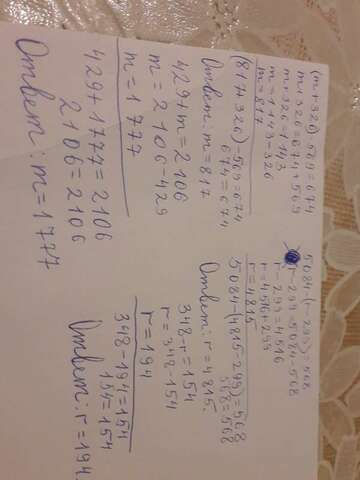 (m+326)-569=674
m+326=674+569
m+326=1143
m=1143-326
m=817
(817+326)-569=674
674=674
Ответ: m=817
429+m=2106
m=2106-429
m=1777
429+1777=2106
2106=2106
Ответ: m=1777
5084-(r-299)=568
r-299=5084-568
r-299=4516
r=4516+299
r=4815
5084-(4815-299)=568
568=568
Ответ: r=4815.
348-r=154
r=348-154
r=194
348-194=154
154=154
Ответ: r=194.